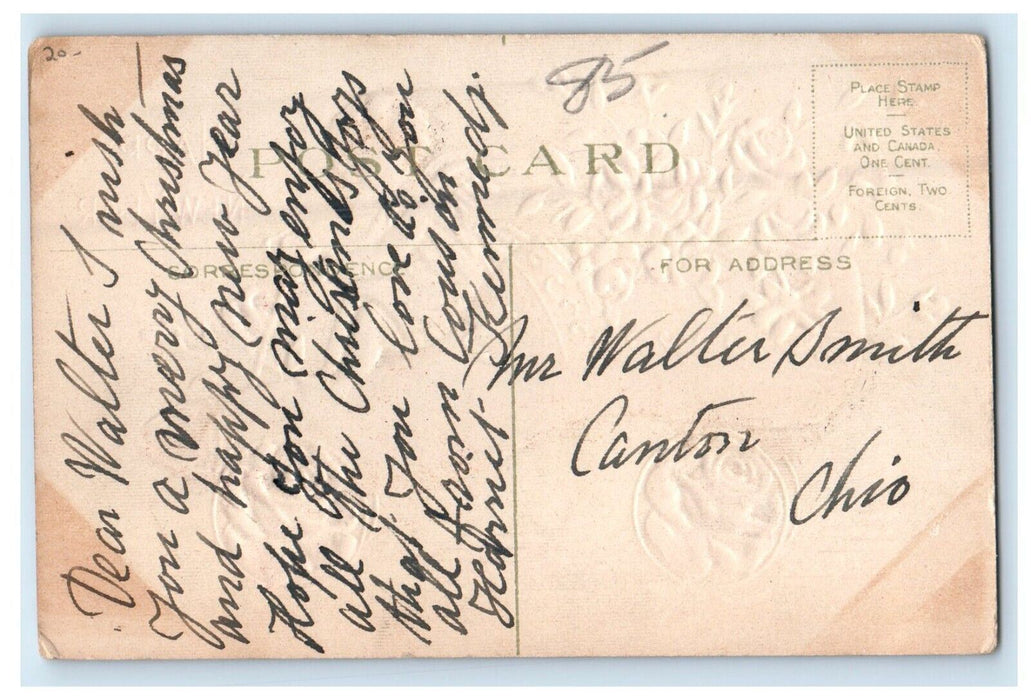 20-
85
POST CARD
PLACE STAMP
HERE
UNITED STATES
AND CANADA,
ONE CENT.
FOREIGN, TWO
CENTS.
CORRESPONDENCE
FOR ADDRESS
Dear Walter I wish
You a merry Christmas
and happy new year
Hope you may enjoy
all the Christmas
that You
all from Cousin
Kennedy.
Mr Walter Smith
Canton
Ohio